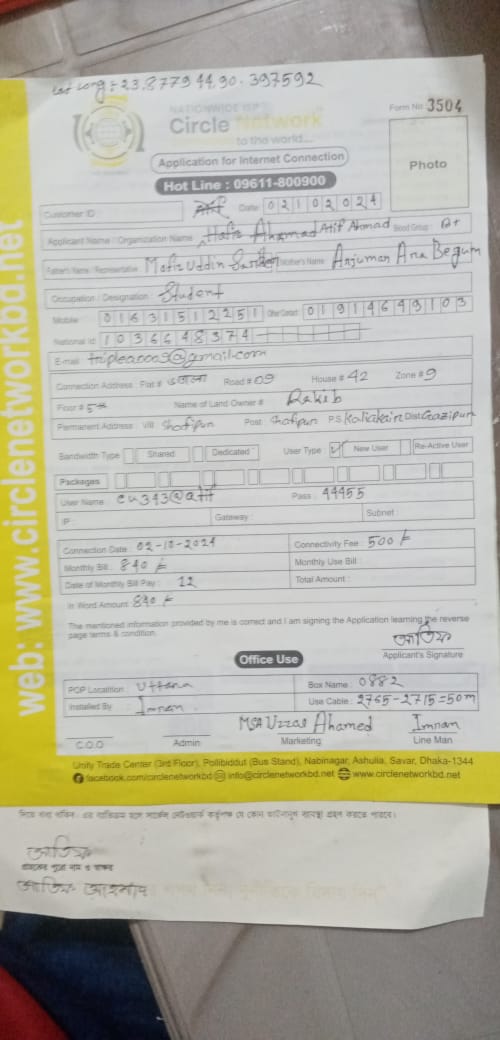 Lat Long = 23.877944,90.397592
NATIONWIDE ISP
Circle Network
to the world...
Form No 3504
Application for Internet Connection
Photo
Hot Line : 09611-800900
Customer ID
Date: 02102024
Applicant Name / Organization Name Hafiz Ahamad Atif Ahmad Blood Group : B+
Father's Name / Representative Mafiz Uddin Mother's Name : Anjuman Ara Begum
Occupation / Designation Student
Mobile 01631512251 Other Contact 01914649103
National Id 1036648374
E-mail triplea0009@gmail.com
Connection Address : Flat # Road # 09 House # 42 Zone # 9
Floor # 5th Name of Land Owner # Rakib
Permanent Address : Vill : Shafipur Post : Shafipur P.S Kaliakair Dist Gazipur
Bandwidth Type Shared Dedicated User Type : ✓ New User Re-Active User
Packages
User Name : cn343@atif Pass : 44455
IP : Gateway : Subnet :
Connection Date : 02-10-2024 Connectivity Fee : 500/-
Monthly Bill : 840/- Monthly Use Bill :
Date of Monthly Bill Pay : 12 Total Amount :
In Word Amount 840/-
The mentioned information provided by me is correct and I am signing the Application learning the reverse
page terms & condition.
আতিফ
Applicant's Signature
Office Use
POP Location : Uttara Box Name : 0882
Installed By Imran Use Cable : 2765-2715=50m
Md Uzzal Ahamed Imran
C.O.O Admin Marketing Line Man
Unity Trade Center (3rd Floor), Pollibiddut (Bus Stand), Nabinagar, Ashulia, Savar, Dhaka-1344
facebook.com/circlenetworkbd info@circlenetworkbd.net www.circlenetworkbd.net
web: www.circlenetworkbd.net
আতিফ
গ্রাহকের পুরো নাম ও স্বাক্ষর
আতিফ আহমাদ